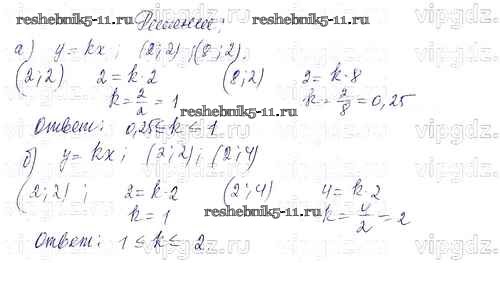 reshebnik5-11.ru
Решение:
reshebnik5-11.ru
а) y = kx ; (2;2) ; (8;2).
(2;2) 2 = k·2 (8;2) 2 = k·8
k = 2/2 = 1 k = 2/8 = 0,25
reshebnik5-11.ru
Ответ: 0,25 ≤ k ≤ 1
б) y = kx ; (2;2) ; (2;4)
(2;2) ; 2 = k·2 (2;4) 4 = k·2
k = 1 reshebnik5-11.ru k = 4/2 = 2
Ответ: 1 ≤ k ≤ 2
vipgdz.
vipgdz.
vipgdz.
vipgdz.